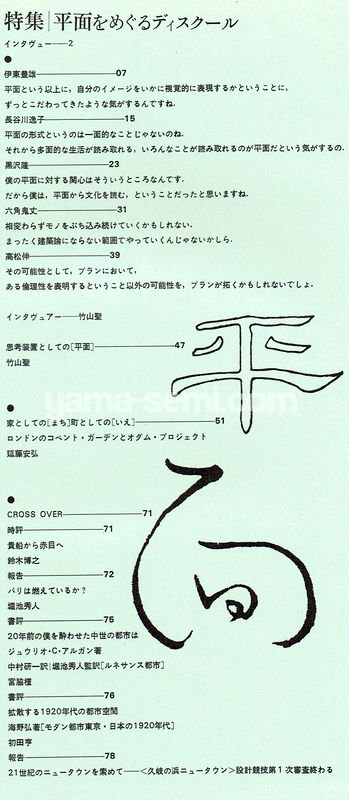 特集|平面をめぐるディスクール
インタヴュー——2
●
伊東豊雄————07
平面という以上に，自分のイメージをいかに視覚的に表現するかということに，
ずっとこだわってきたような気がするんですね．
長谷川逸子————15
平面の形式というのは一面的なことじゃないのね．
それから多面的な生活が読み取れる，いろんなことが読み取れるのが平面だという気がするの．
黒沢隆————23
僕の平面に対する関心はそういうところなんです．
だから僕は，平面から文化を読む，ということだったと思いますね．
六角鬼丈————31
相変わらずモノをぶち込み続けていくかもしれない．
まったく建築論にならない範囲でやっていくんじゃないかしら．
高松伸————39
その可能性として，プランにおいて，
ある倫理性を表明するということ以外の可能性を，プランが拓くかもしれないでしょ．
インタヴュアー——竹山聖
思考装置としての[平面]————47
竹山聖
平面
yama-semi.com
●
家としての[まち]町としての[いえ]————51
ロンドンのコベント・ガーデンとオダム・プロジェクト
延藤安弘
●
CROSS OVER————71
時評————71
貴船から赤目へ
鈴木博之
報告————72
パリは燃えているか？
堀池秀人
書評————75
20年前の僕を酔わせた中世の都市は
ジュウリオ・C・アルガン著
中村研一訳|堀池秀人監訳[ルネサンス都市]
宮脇檀
書評————76
拡散する1920年代の都市空間
海野弘著[モダン都市東京・日本の1920年代]
初田亨
報告————78
21世紀のニュータウンを索めて——〈久岐の浜ニュータウン〉設計競技第1次審査終わる